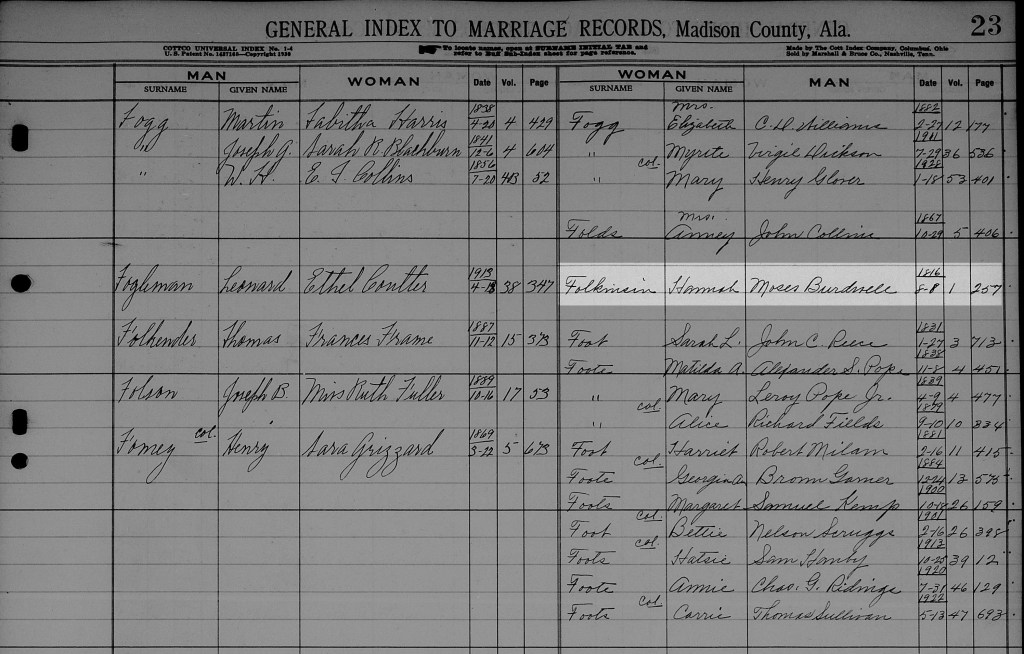 GENERAL INDEX TO MARRIAGE RECORDS, Madison County, Ala. 23
COTTCO UNIVERSAL INDEX No. 1-4
U. S. Patent No. Copyright
To locate names, open at SURNAME INITIAL TAB and
refer to Buff Sub-Index sheet for page reference.
Made by The Cott Index Company, Columbus, Ohio
Sold by Marshall & Bruce Co., Nashville, Tenn.
MAN WOMAN Date Vol. Page WOMAN MAN Date Vol. Page
SURNAME GIVEN NAME SURNAME GIVEN NAME
Fogg Martin Tabitha Harris 1838 4-20 4 429 Fogg Mrs. Elizabeth C. D. Williams 1882 2-27 12 177
" Joseph G. Sarah R. Blackburn 1841 12-6 4 604 " col. Myrtie Virgil Dickson 1911 7-29 36 536
" W. H. E. S. Collins 1856 7-20 4B 52 " Mary Henry Glover 1-18 53 401
Folds Mrs. Anney John Collins 1867 10-29 5 406
Fogleman Leonard Ethel Coulter 1913 4-13 38 347 Folkinsin Hannah Moses Burdwell 1816 8-8 1 257
Folkender Thomas Frances Frame 1887 11-12 15 373 Foot Sarah L. John C. Reece 1831 1-27 3 713
Foote Matilda A. Alexander S. Pope 1838 11-8 4 451
Folson Joseph B. Miss Ruth Fuller 1889 10-16 17 53 " Mary Leroy Pope Jr. 1839 4-9 4 477
" col. Alice Richard Fields 1879 9-10 10 334
Fomey col. Henry Sara Grizzard 1869 3-22 5 673 Foot Harriet Robert Milam 1881 2-16 11 415
Foote col. Georgia Brown Garner 1884 12-24 13 575
Foots Margaret Samuel Kemp 1900 10-18 26 159
Foot col. Bettie Nelson Scruggs 1901 2-16 26 398
Foots col. Hatsie Sam Hamby 1912 10-25 39 12
Foote Annie Chas. G. Ridings 1920 7-31 46 129
Foots col. Carrie Thomas Sullivan 1922 5-13 47 693